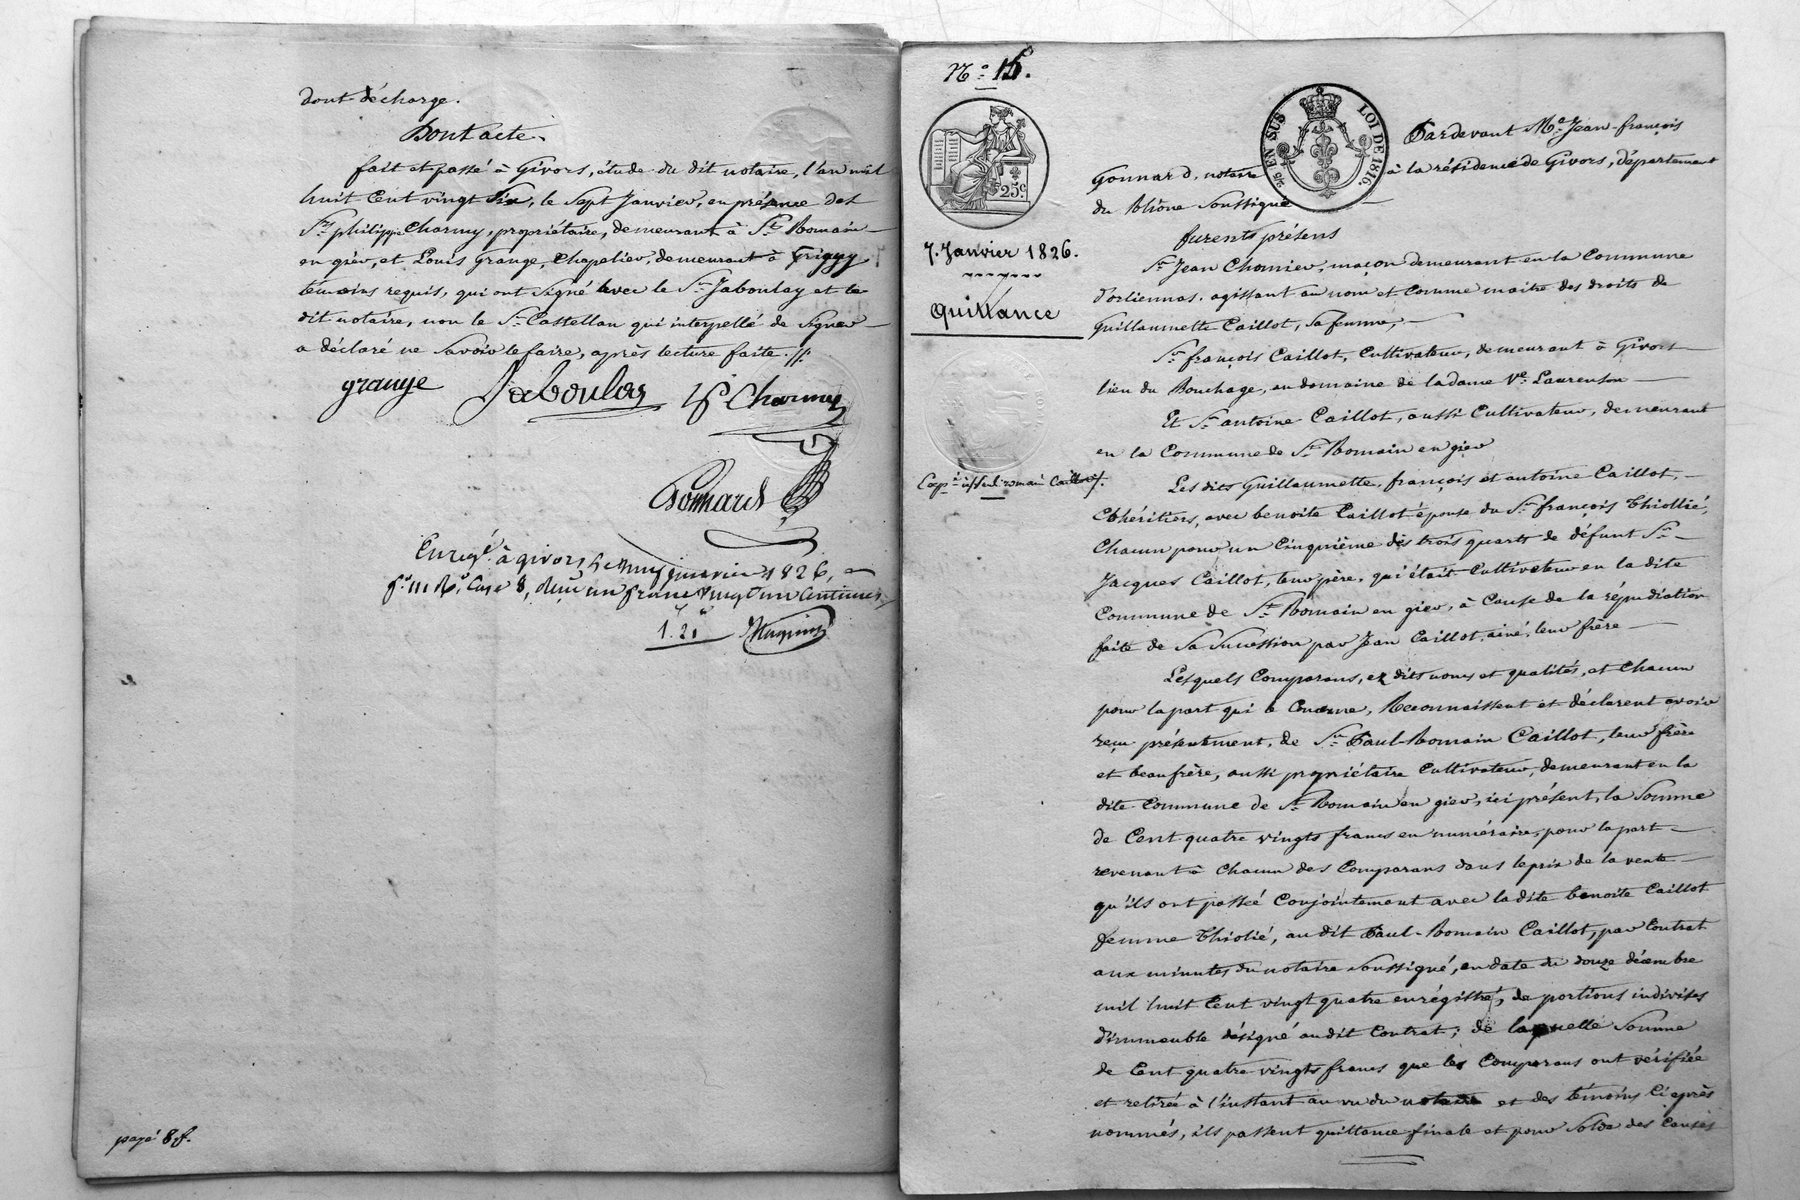 dont décharge.
Dont acte.
fait et passé à Givors, étude du dit notaire, l'an mil
huit Cent vingt Six, le Sept Janvier, en présence des
Srs philippe Charmy, propriétaire, demeurant à St Romain
en gier, et Louis Grange, Chapelier, demeurant à Grigny
témoins requis, qui ont Signé avec le Sr Jaboulay et le
dit notaire, non le Sr Castellan qui interpellé de Signer
a déclaré ne Savoir le faire, après lecture faite. //.
grange Jaboulay Ph Charmy
Gonnard
Enregé à givors le neuf janvier 1826,
fo 111 Ro Case 8, reçu un franc vingt un Centimes
1. 21
payé 8 f.
No 15.
25c
2/5 EN SUS LOI DE 1816.
7. Janvier 1826.
Quittance
Pardevant Me Jean-françois
Gonnard, notaire à la résidence de Givors, département
du Rhône Soussigné
furent présens
Sr Jean Chomier, maçon demeurant en la Commune
d'orliennas, agissant au nom et Comme maitre des droits de
Guillaumette Caillot, Sa femme,
Sr françois Caillot, Cultivateur, demeurant à Givors
lieu du Bouchage, au domaine de la dame Ve Laurenson
Et Sr antoine Caillot, aussi Cultivateur, demeurant
en la Commune de St Romain en gier
Les dits Guillaumette, françois et antoine Caillot,
Cohéritiers, avec benoite Caillot épouse du Sr françois Thiollié,
Chacun pour un Cinquième des trois quarts de défunt Sr
Jacques Caillot, leur père, qui était Cultivateur en la dite
Commune de St Romain en gier, à Cause de la répudiation
faite de Sa Succession par Jean Caillot, ainé, leur frère
Lesquels Comparans, ez dits noms et qualités, et Chacun
pour la part qui le Concerne, Reconnaissent et déclarent avoir
reçu présentement, de Sr Paul-Romain Caillot, leur frère
et beaufrère, aussi propriétaire Cultivateur, demeurant en la
dite Commune de St Romain en gier, ici présent, la Somme
de Cent quatre vingts francs en numéraire, pour la part
revenant à Chacun des Comparans dans le prix de la vente
qu'ils ont passée Conjointement avec la dite benoite Caillot
femme Thiolié, au dit Paul-Romain Caillot, par Contrat
aux minutes du notaire Soussigné, en date du douze décembre
mil huit Cent vingt quatre enrégistré, de portions indivises
d'immeuble désigné au dit Contrat; de laquelle Somme
de Cent quatre vingts francs que les Comparans ont vérifiée
et retirée à l'instant au vu du notaire et des témoins Ci après
nommés, ils passent quittance finale et pour Solde des Causes